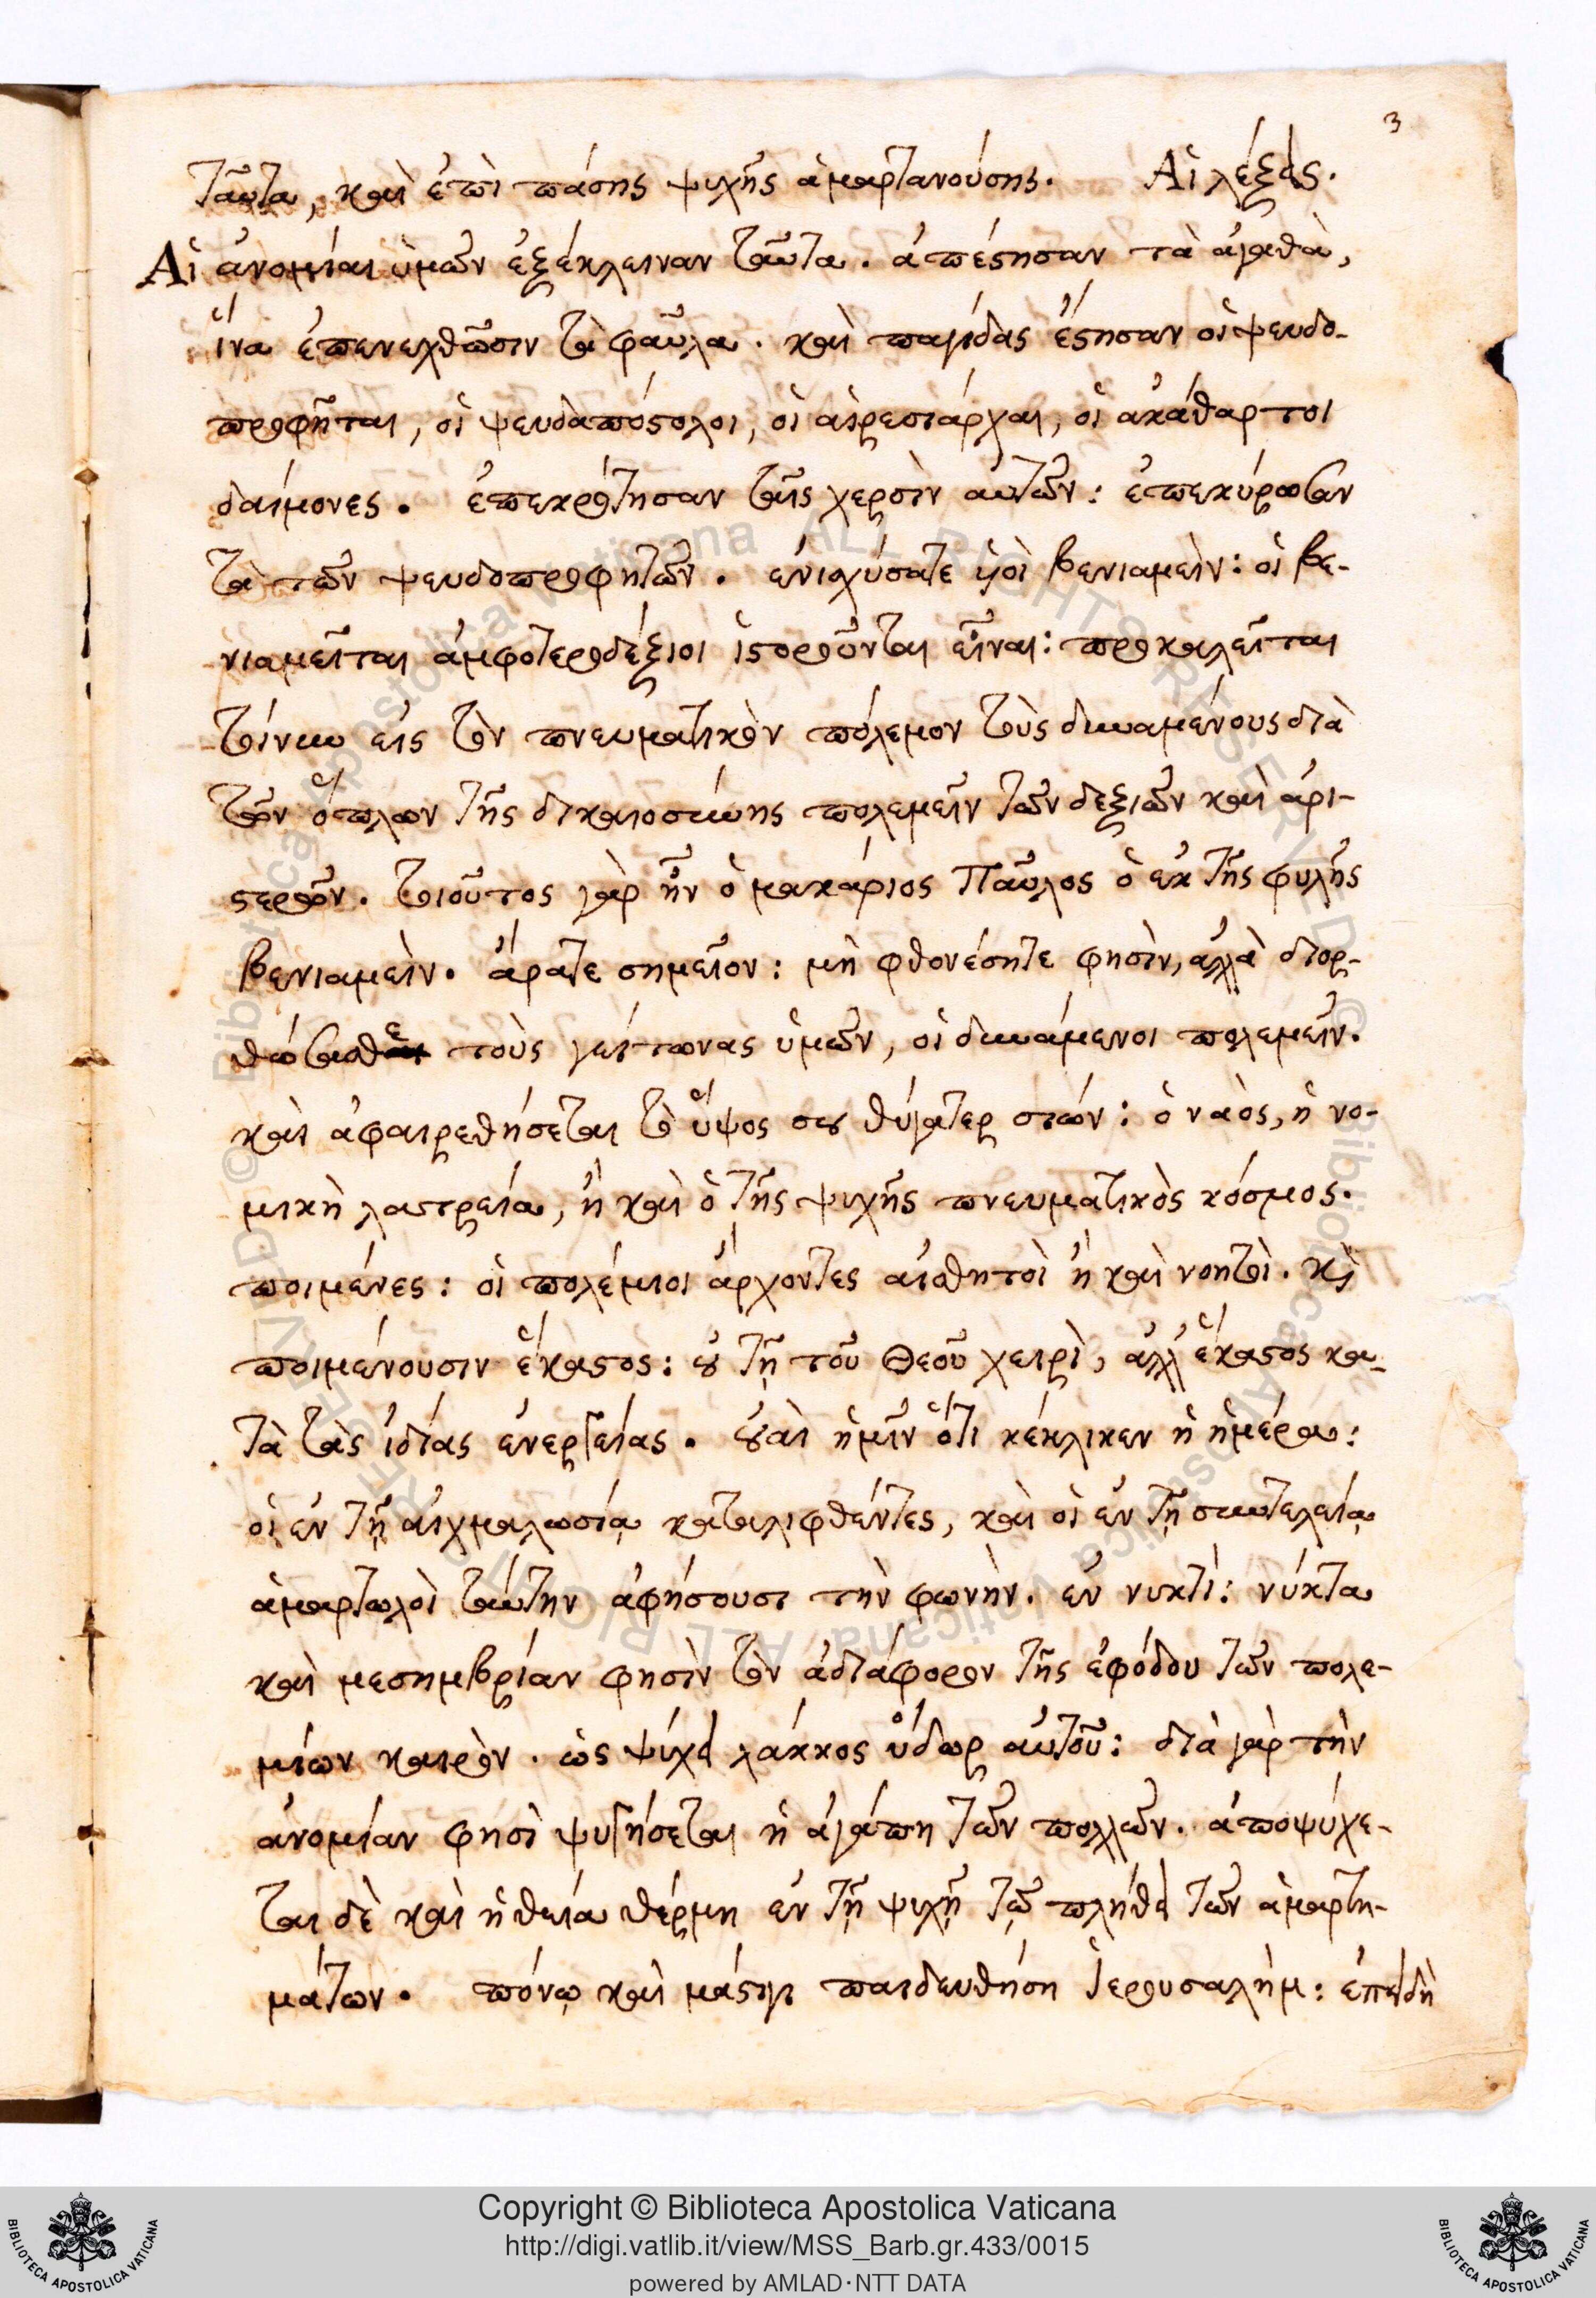 3
ταῦτα, καὶ ἐπὶ πάσης ψυχῆς ἁμαρτανούσης. Αἱ λέξεις.
Αἱ ἀνομίαι ὑμῶν ἐξέκλειναν ταῦτα. ἀπέστησαν τὰ ἀγαθὰ,
ἵνα ἐπενεχθῶσιν τὰ φαῦλα. καὶ παγίδας ἔστησαν οἱ ψευδο-
προφῆται, οἱ ψευδαπόστολοι, οἱ αἱρεσιάρχαι, οἱ ἀκάθαρτοι
δαίμονες. ἐπεκρότησαν ταῖς χερσὶν αὐτῶν: ἐπεκύρωσαν
τὰ τῶν ψευδοπροφητῶν. ἐνισχύσατε υἱοὶ βενιαμεὶν: οἱ βε-
νιαμεῖται ἀμφοτεροδέξιοι ἱστοροῦνται εἶναι: προκαλεῖται
τοίνυν εἰς τὸν πνευματικὸν πόλεμον τοὺς δυναμένους διὰ
τῶν ὅπλων τῆς δικαιοσύνης πολεμεῖν τῶν δεξιῶν καὶ ἀρι-
στερῶν. τοιοῦτος γὰρ ἦν ὁ μακάριος Παῦλος ὁ ἐκ τῆς φυλῆς
βενιαμεὶν. ἄρατε σημεῖον: μὴ φθονέσητε φησὶν, ἀλλὰ διορ-
θώσασθε τοὺς γείτωνας ὑμῶν, οἱ δυνάμενοι πολεμεῖν.
καὶ ἀφαιρεθήσεται τὸ ὕψος σου θύγατερ σιών: ὁ ναὸς, ἡ νο-
μικὴ λατρεία, ἢ καὶ ὁ τῆς ψυχῆς πνευματικὸς κόσμος.
ποιμένες: οἱ πολέμιοι ἄρχοντες αἰσθητοὶ ἢ καὶ νοητοὶ. καὶ
ποιμένουσιν ἕκαστος: οὐ τῇ τοῦ Θεοῦ χειρὶ, ἀλλ' ἕκαστος κα-
τὰ τὰς ἰδίας ἐνεργείας. οὐαὶ ἡμῖν ὅτι κέκλικεν ἡ ἡμέρα:
οἱ ἐν τῇ αἰχμαλωσίᾳ καταλιφθέντες, καὶ οἱ ἐν τῇ συντελείᾳ
ἁμαρτωλοὶ ταύτην ἀφήσουσι τὴν φωνὴν. ἐν νυκτὶ: νύκτα
καὶ μεσημβρίαν φησὶν τὸν ἀδιάφορον τῆς ἐφόδου τῶν πολε-
μίων καιρὸν. ὡς ψύχει λάκκος ὕδωρ αὐτοῦ: διὰ γὰρ τὴν
ἀνομίαν φησὶ ψυγήσεται ἡ ἀγάπη τῶν πολλῶν. ἀποψύχε-
ται δὲ καὶ ἡ θεία θέρμη ἐν τῇ ψυχῇ τῷ πλήθει τῶν ἁμαρτη-
μάτων. πόνῳ καὶ μάστιγι παιδευθήση ἱερουσαλὴμ: ἐπειδὴ
Copyright © Biblioteca Apostolica Vaticana
http://digi.vatlib.it/view/MSS_Barb.gr.433/0015
powered by AMLAD·NTT DATA